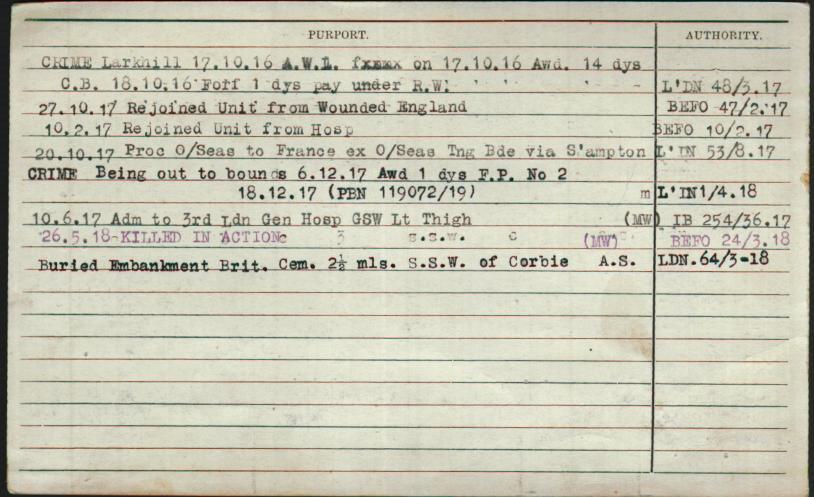 PURPORT. AUTHORITY.
CRIME Larkhill 17.10.16 A.W.L. fxxmx on 17.10.16 Awd. 14 dys
C.B. 18.10.16 Forf 1 dys pay under R.W. L'DN 48/3.17
27.10.17 Rejoined Unit from Wounded England BEFO 47/2.17
10.2.17 Rejoined Unit from Hosp BEFO 10/2.17
20.10.17 Proc O/Seas to France ex O/Seas Tng Bde via S'ampton L'DN 53/8.17
CRIME Being out to bounds 6.12.17 Awd 1 dys F.P. No 2
18.12.17 (PBN 119072/19) m L'DN1/4.18
10.6.17 Adm to 3rd Ldn Gen Hosp GSW Lt Thigh (MW) IB 254/36.17
26.5.18-KILLED IN ACTION (MW) BEFO 24/3.18
Buried Embankment Brit. Cem. 2½ mls. S.S.W. of Corbie A.S. LDN.64/3-18